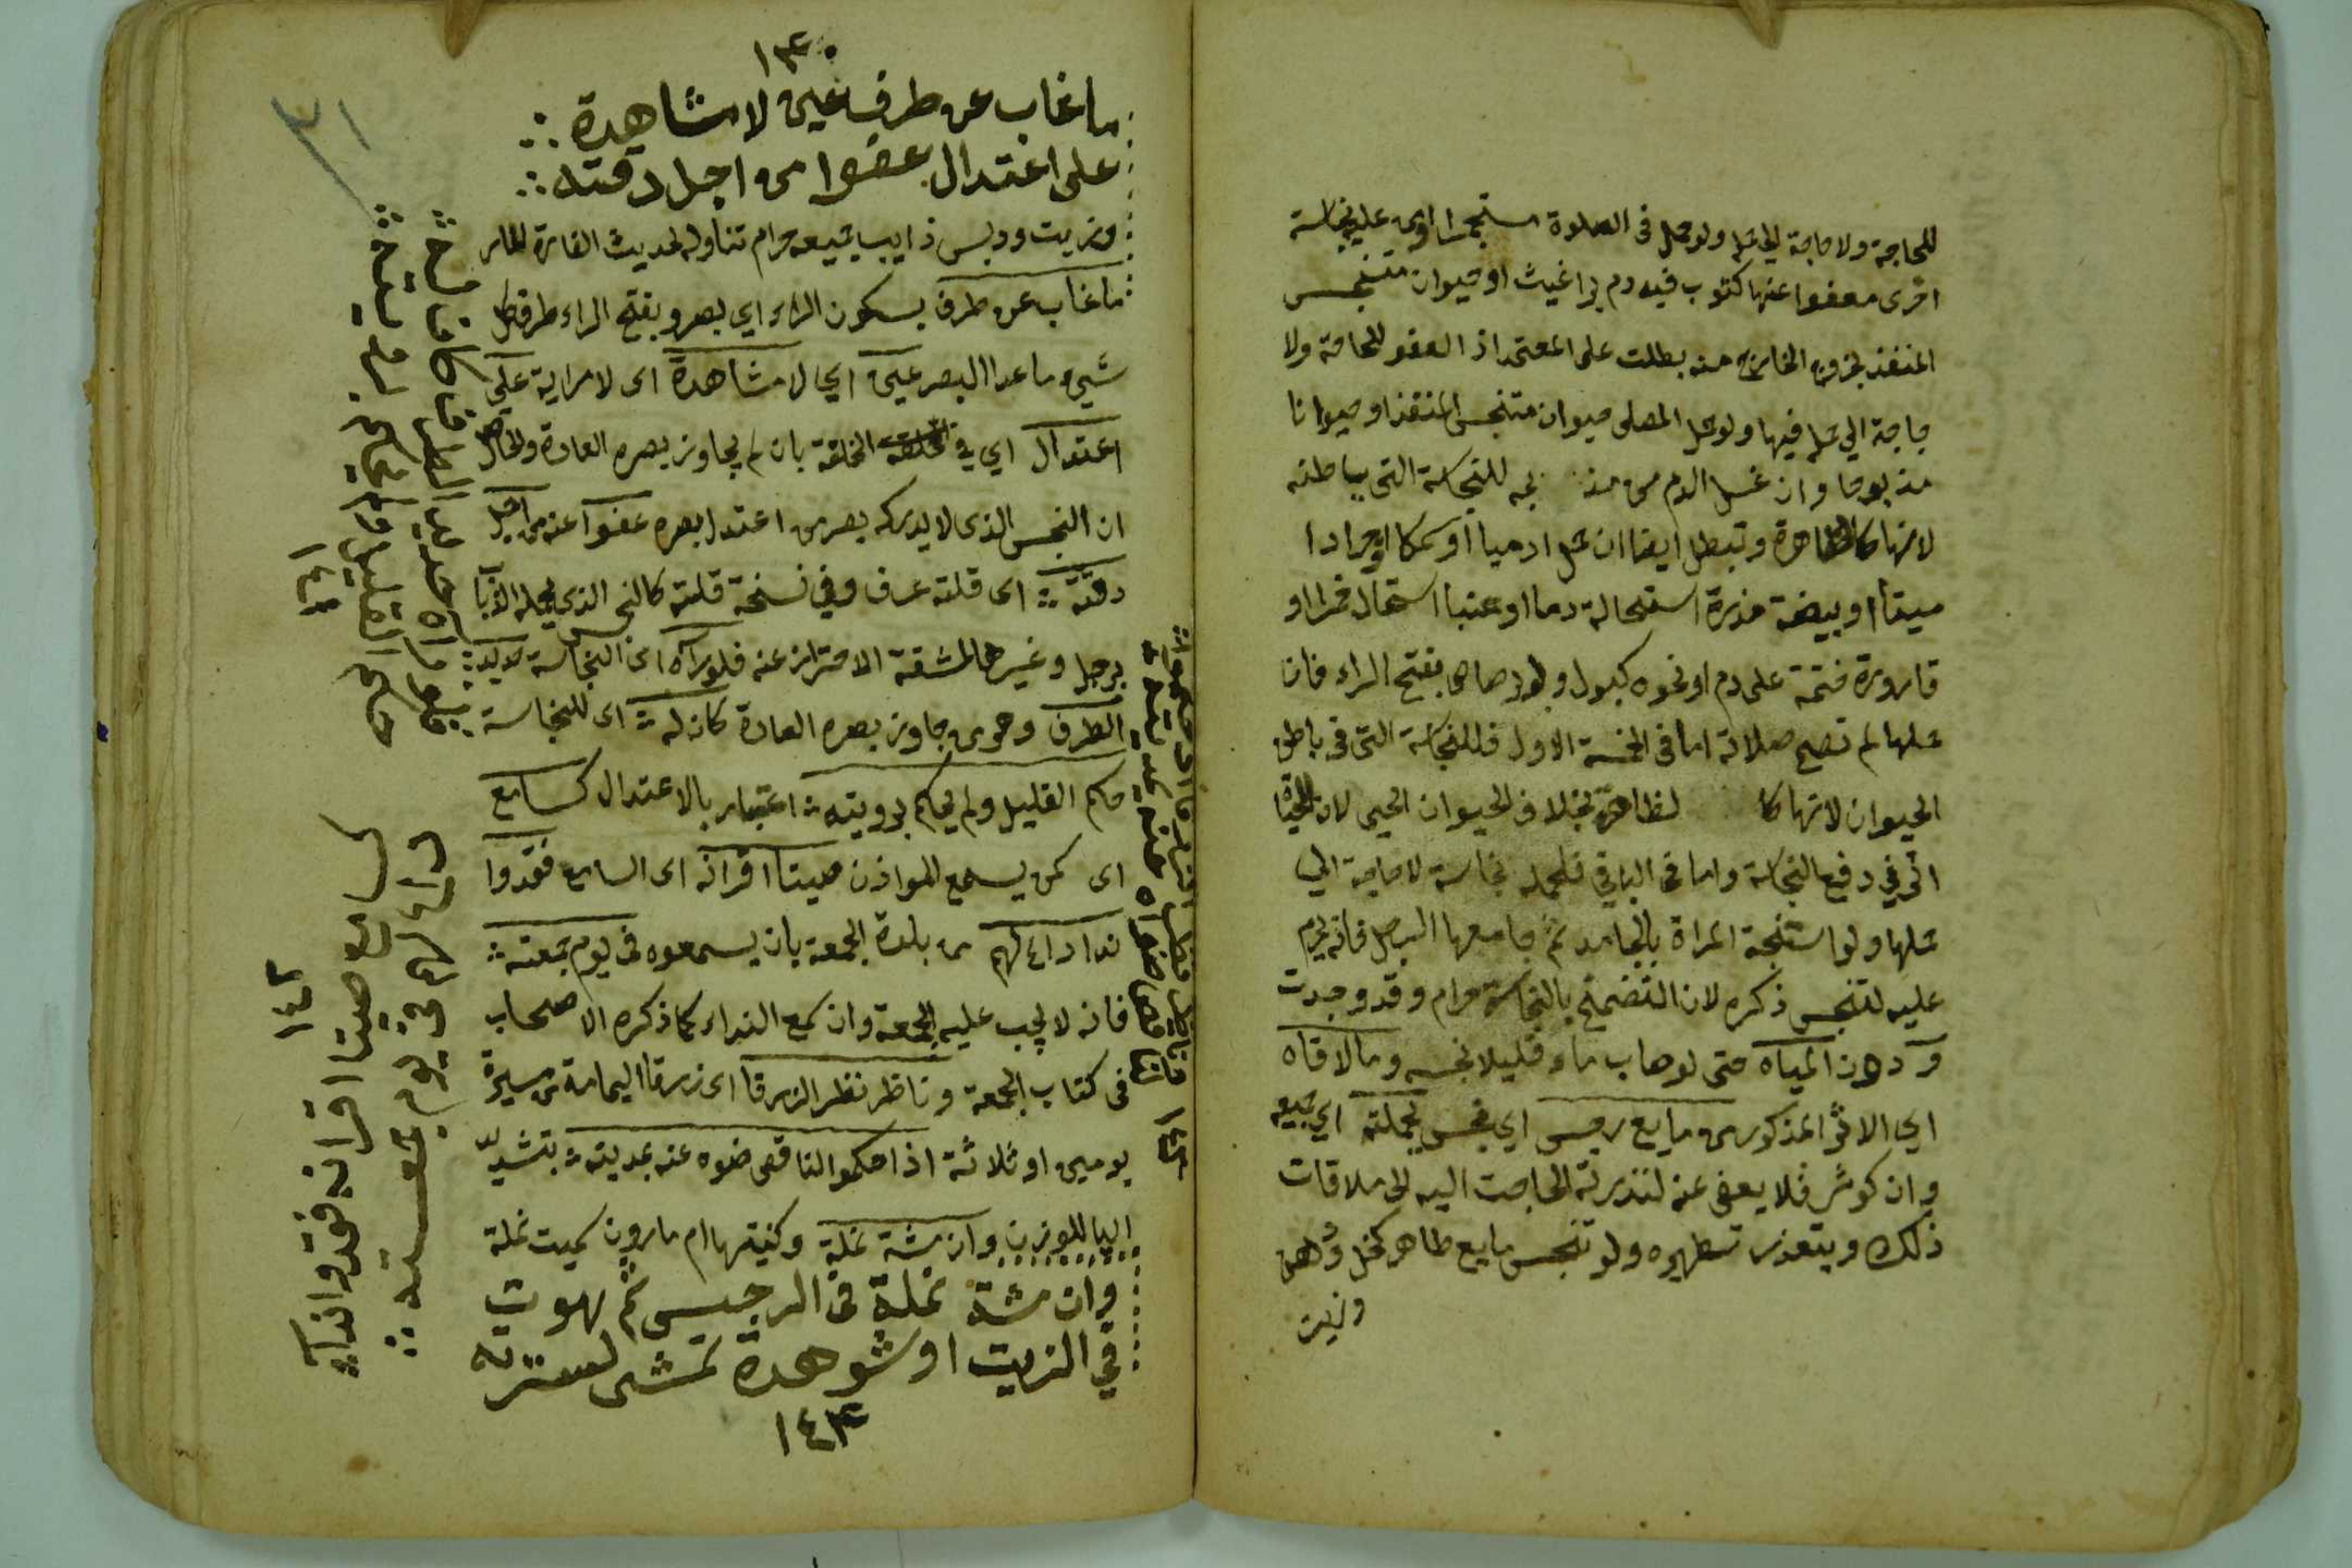 للحاجة ولا حاجة الي حمله ولو حمل في الصلوة مستجمرا او من عليه نجاسة
اخرى معفوا عنها كثوب فيه دم براغيث او حيوان متنجس
المنفذ بخروج الخارج منه بطلت على المعتمد اذ العفو للحاجة ولا
حاجة الي حمله فيها ولو حمل المصلى حيوان متنجس المنفذ او حيوانا
مذبوحا وان غسل الدم من مذبحه للنجاسة التى بباطنه
لانها كالظاهرة وتبطل ايضا ان حمل ادميا او سمكا او جرادا
ميتا او بيضة مذرة استحالة دما او عنبا استحال خمرا او
قارورة ختمة على دم او نحوه كبول ولو برصاص بفتح الراء فان
حملها لم تصح صلاته اما في الخمسة الاول فللنجاسة التى فى باطن
الحيوان لانها كالظاهرة بخلاف الحيوان الحيى لان للحياة
اثر في دفع النجاسة واما في الباقي فلحمله نجاسة لا حاجة الي
حملها ولو استنجة المراة بالجامد ثم جامعها الرجل فانه يحرم
عليه لتنجس ذكره لان التضمخ بالنجاسة حرام وقد وجدت
و دون المياه حتى لو صاب ماء قليلا نجسه وما لاقاه
اي الاثر المذكور من مايع رجس اي نجس بجملته اي جميعه
وان كوثر فلا يعفى عنه لندرية الحاجت اليه الى ملاقات
ذلك ويتعذر تطهيره ولو تنجس مايع طاهر كخل ودهن
وزيت
١٤٠
ما غاب عن طرف عين لا مشاهدة
على اعتدال عفوا من اجل دقته
٣١
وزيت ودبس ذايب جميعه حرام تناوله لحديث الفارة المار
ما غاب عن طرف بسكون الراء اي بصر وبفتح الراء طرف كل
شيء ما عدا البصر عين اي لا مشاهدة اى لا مراية على
اعتدال اي في الخلقة بان لم يجاوز بصره العادة والحاصل
ان النجس الذى لا يدركه بصر من اعتدل بصره عفوا عنه من اجل
دقته اى قلته عرف وفي نسخة قلته كالنجس الذي يحمله الذباب
برجل وغيرها لمشقة الاحتراز عنه فلو راه اى النجاسة حديد
الطرف وهو من جاوز بصره العادة كان له اى للنجاسة
حكم القليل ولم يحكم برويته اعتبار بالاعتدال كسامع
اى كمن يسمع للمواذن صيتا اقرانه اى السامع فقدوا
ندا داع لهم من بلدة الجمعه بان يسمعوه فى يوم جمعته
فانه لا يجب عليه الجمعة وان سمع النداء كما ذكره الاصحاب
فى كتاب الجمعة وناظر نظر الزرقا اى زرقا اليمامة من مسيرة
يومين او ثلاثة اذا حكموا الناقص ضوه عنه بمديته بتشديد
اليا للوزن وان مشة نملة وكنيتها ام مارون سميت نملة
وان مشة نملة فى الرجس ثم هوت
في الزيت او شوهدة تمشى لسترته
١٤٣
فلو راه حديد الطرف كان له
حكم القليل ولم يحكم برويته
١٤١
كسامع صيتا اقرانه فقدوا ندا
داع لهم فى يوم جمعته
١٤٢